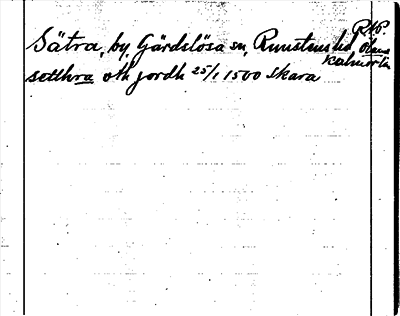 RAP.
Sätra, by, Gärdslösa sn, Runstens hd Ölands
Kalmar län
setthra oth jordh 25/1 1500 Skara